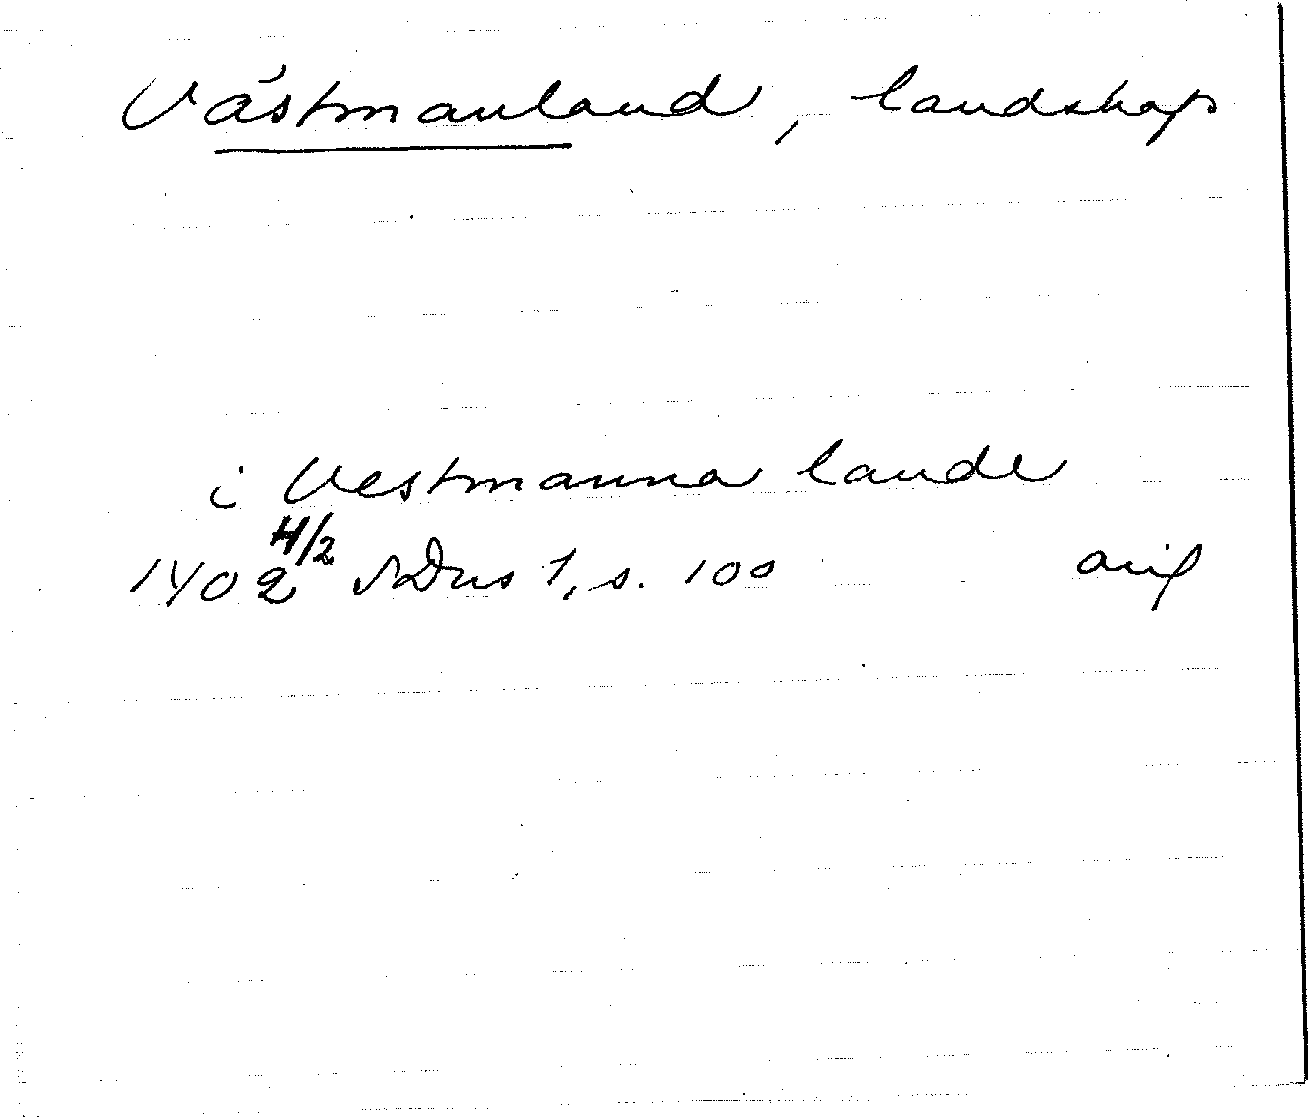 Västmanland, landskap
i Vestmanna lande
1402 4/2 SDns 1, s. 100 orig